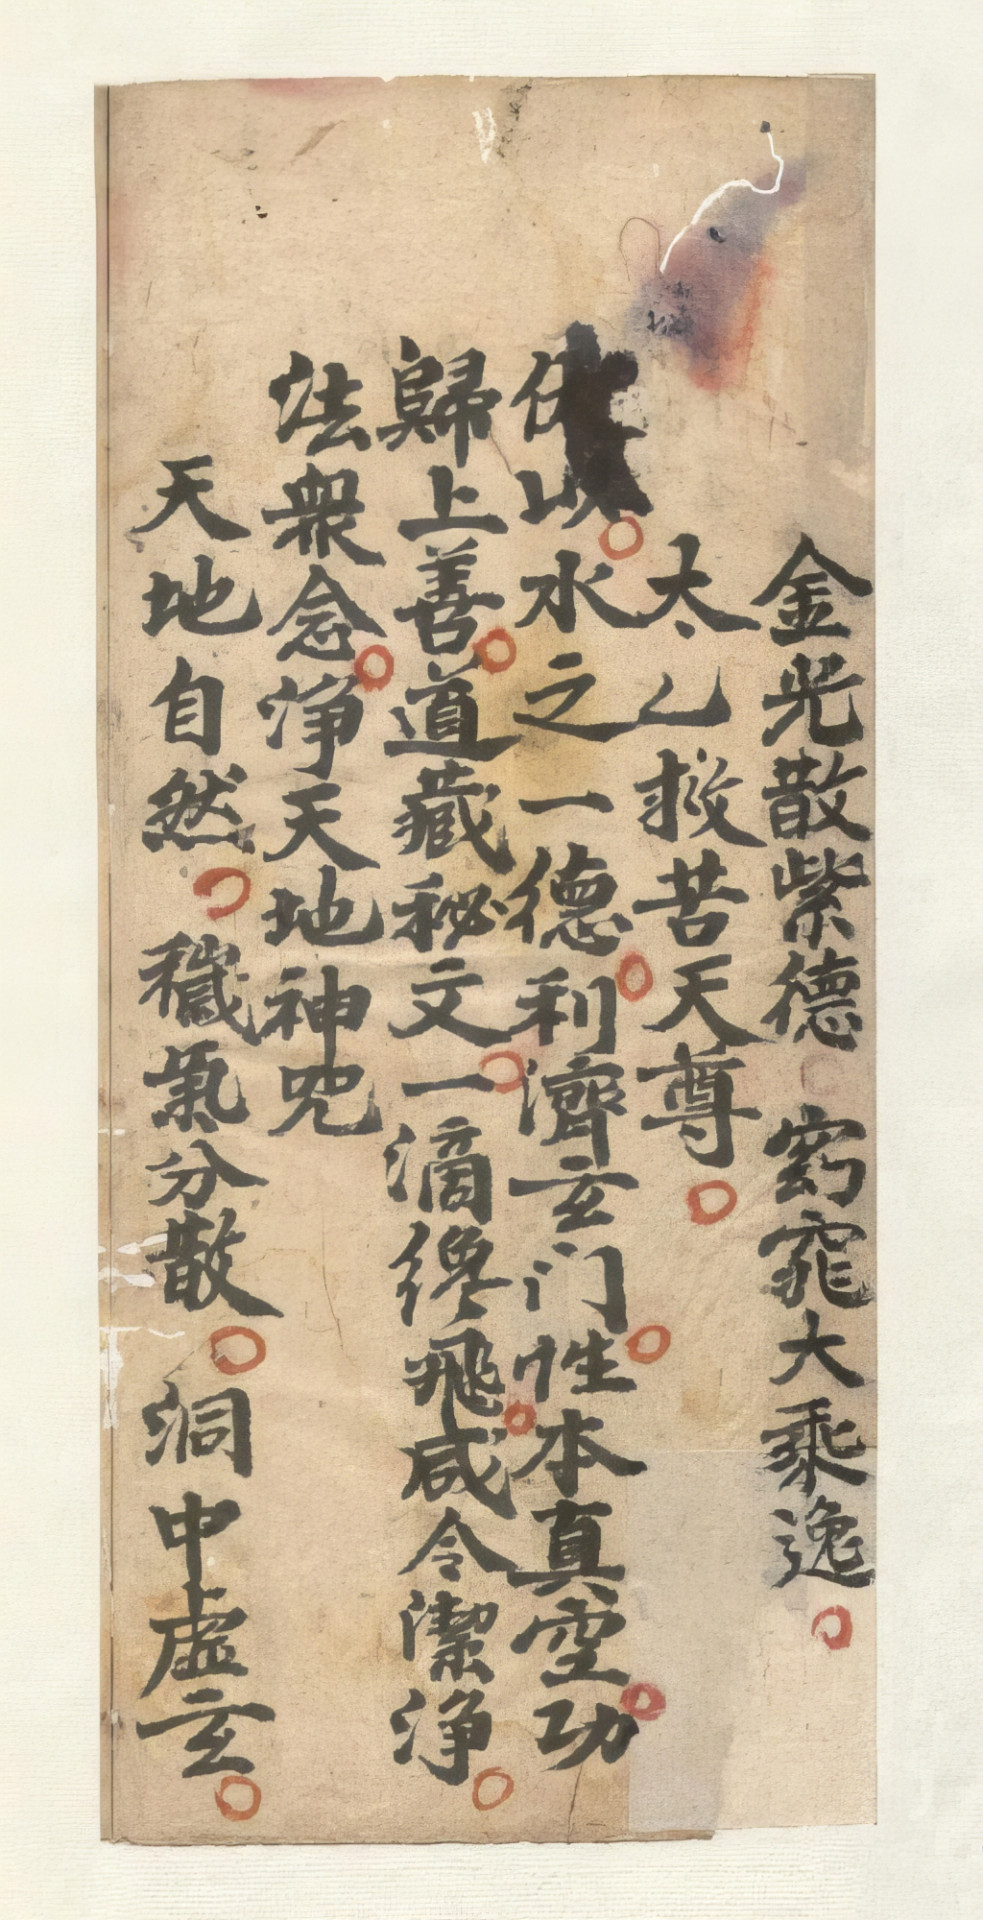 金光散紫德窈窕大乘逸
太乙救苦天尊
伏以水之一德利濟玄门性本真空功
歸上善道藏秘文一滴纔飛咸令潔净
法衆念淨天地神咒
天地自然穢氣分散洞中虚玄